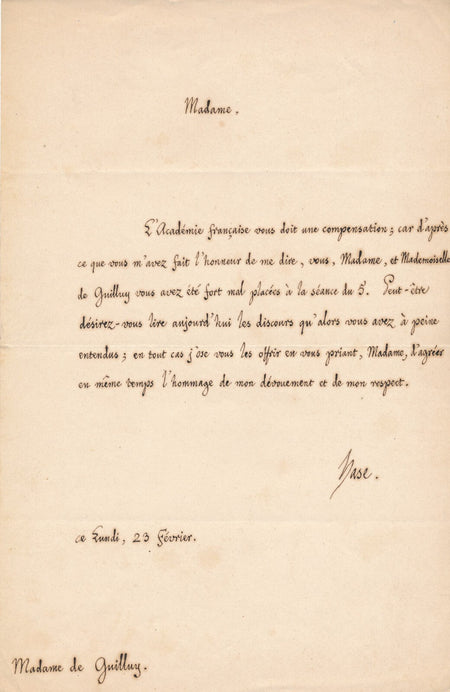 Madame.
L'Académie française vous doit une compensation; car d'après
ce que vous m'avez fait l'honneur de me dire, vous, Madame, et Mademoiselle
de Guilluy vous avez été fort mal placées à la séance du 5. Peut-être
désirez-vous lire aujourd'hui les discours qu'alors vous avez à peine
entendus; en tout cas j'ose vous les offrir en vous priant, Madame, d'agréer
en même temps l'hommage de mon dévouement et de mon respect.
ce Lundi, 23 Février.
Madame de Guilluy.